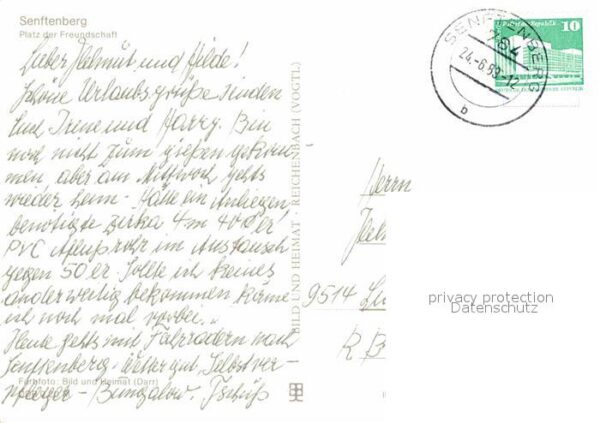 Senftenberg
Platz der Freundschaft
Lieber Helmut und Hilde!
Schöne Urlaubsgrüße senden
Euch Irine und Harry. Bin
noch nicht zum gießen gekom-
men, aber am Mittwoch gehts
wieder heim - Hätte ein Anliegen
benötigte zirka 4m 40er
PVC Abflußrohr im Austausch
gegen 50er Sollte ich keines
anderweitig bekommen käme
ich noch mal vorbei..
Heute gehts mit Fahrrädern nach
Senftenberg - Wetter gut, Selbstver-
pfleger - Bungalow. Tschüß
Farbfoto: Bild und Heimat (Darr)
BILD UND HEIMAT · REICHENBACH (VOGTL)
SENFTENBERG
784
24.-6.89-12
b
10
Herrn
9514
privacy protection
Datenschutz